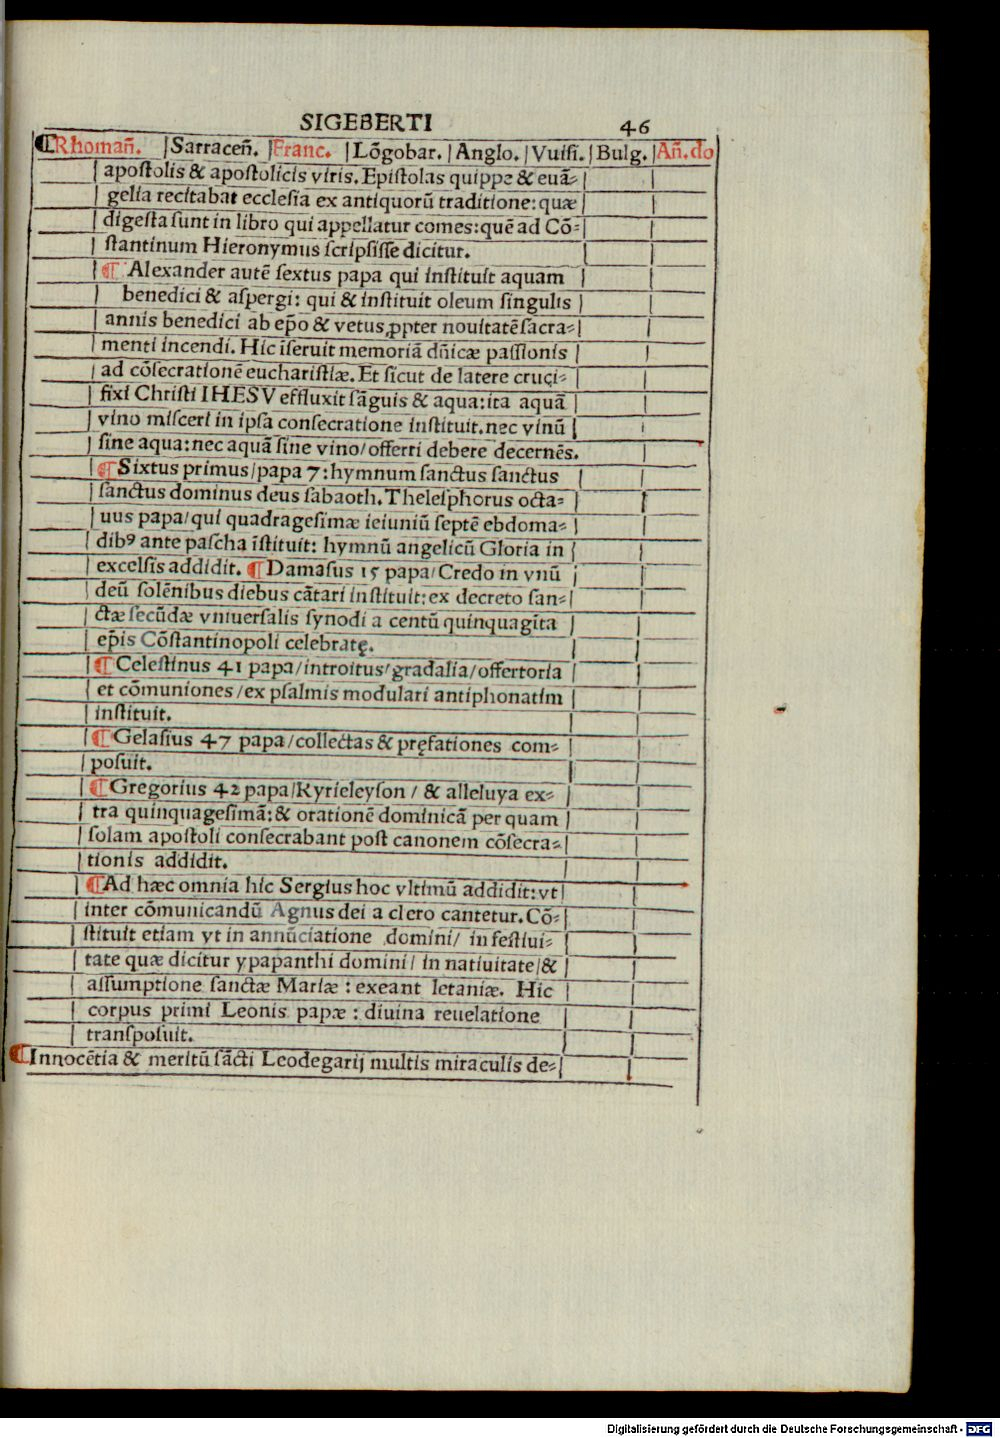 SIGEBERTI 46
¶Rhomañ. |Sarraceñ.|Franc. |Lõgobar.|Anglo.|Vuisi.|Bulg.|Añ.do
apostolis & apostolicis viris. Epistolas quippe & euã-
gelia recitabat ecclesia ex antiquorũ traditione: quæ
digesta sunt in libro qui appellatur comes: quẽ ad Cõ-
stantinum Hieronymus scripsisse dicitur.
¶ Alexander autẽ sextus papa qui instituit aquam
benedici & aspergi: qui & instituit oleum singulis
annis benedici ab ep̃o & vetus ꝓpter nouitatẽ sacra-
menti incendi. Hic ĩseruit memoriã dñicæ passionis
ad cõsecrationẽ eucharistiæ. Et sicut de latere cruci-
fixi Christi IHESV effluxit sãguis & aqua: ita aquã
vino misceri in ipsa consecratione instituit. nec vinũ
sine aqua: nec aquã sine vino/ offerri debere decernẽs.
¶Sixtus primus/ papa 7: hymnum sanctus sanctus
sanctus dominus deus sabaoth. Thelesphorus octa-
uus papa/ qui quadragesimæ ieiuniũ septẽ ebdoma-
dibꝰ ante pascha ĩstituit: hymnũ angelicũ Gloria in
excelsis addidit. ¶Damasus 15 papa/ Credo in vnũ
deũ solẽnibus diebus cãtari instituit: ex decreto san-
ctæ secũdæ vniuersalis synodi a centũ quinquagĩta
ep̃is Cõstantinopoli celebratę.
¶Celestinus 41 papa/ introitus/ gradalia/ offertoria
et cõmuniones/ ex psalmis modulari antiphonatim
instituit.
¶Gelasius 47 papa/ collectas & pręfationes com-
posuit.
¶Gregorius 42 papa/ Kyrieleyson/ & alleluya ex-
tra quinquagesimã: & orationẽ dominicã per quam
solam apostoli consecrabant post canonem cõsecra-
tionis addidit.
¶Ad hæc omnia hic Sergius hoc vltimũ addidit: vt
inter cõmunicandũ Agnus dei a clero cantetur. Cõ-
stituit etiam vt in annũciatione domini/ in festiui-
tate quæ dicitur ypapanthi domini/ in natiuitate/ &
assumptione sanctæ Mariæ: exeant letaniæ. Hic
corpus primi Leonis papæ: diuina reuelatione
transposuit.
¶Innocẽtia & meritũ sãcti Leodegarij multis miraculis de-
Digitalisierung gefördert durch die Deutsche Forschungsgemeinschaft - DFG